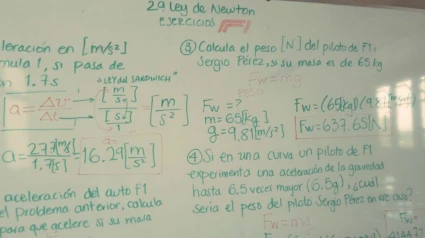 2a Ley de Newton
EJERCICIOS F1
leración en [m/s²]
mula 1, si pasa de
n 1.7s
"LEY DEL SANDWICH"
a = Δv/Δt → [m/s]/[s]/1 = [m/s²]
a = 27.7[m/s]/1.7[s] = 16.29[m/s²]
aceleración del auto F1
el problema anterior, calcula
para que acelere si su masa
③ Calcula el peso [N] del piloto de F1,
Sergio Pérez, si su masa es de 65kg
Fw = mg
PESO
Fw = ?
m = 65[kg]
g = 9.81[m/s²]
Fw = (65[kg])(9.81[m/s²])
Fw = 637.65[N]
④ Si en una curva un piloto de F1
experimenta una aceleración de la gravedad
hasta 6.5 veces mayor (6.5g), ¿cuál
sería el peso del piloto Sergio Pérez en ese caso?
Fw = mg
Fw=